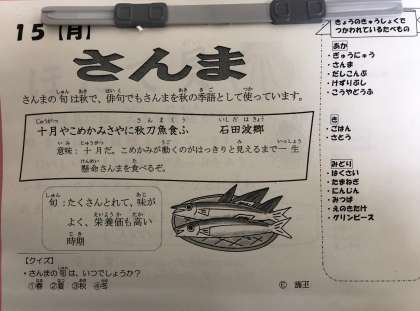 15【月】
さんま
さんまの旬は秋で、俳句でもさんまを秋の季語として使っています。
十月やこめかみさやに秋刀魚食ふ 石田波郷
意味：十月だ。こめかみが動くのがはっきりと見えるまで一生
懸命さんまを食べるぞ。
旬：たくさんとれて、味が
よく、栄養価も高い
時期
【クイズ】
・さんまの旬は、いつでしょうか？
①春 ②夏 ③秋 ④冬
きょうのきゅうしょくで
つかわれているたべもの
あか
・ぎゅうにゅう
・さんま
・だしこんぶ
・けずりぶし
・こうやどうふ
き
・ごはん
・さとう
みどり
・はくさい
・たまねぎ
・にんじん
・みつば
・えのきたけ
・グリンピース